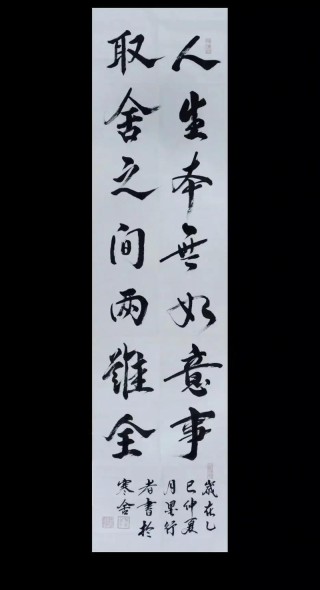 人生本無如意事
取舍之间两難全
歲在乙
巳仲夏
月墨行
者書於
寒舍